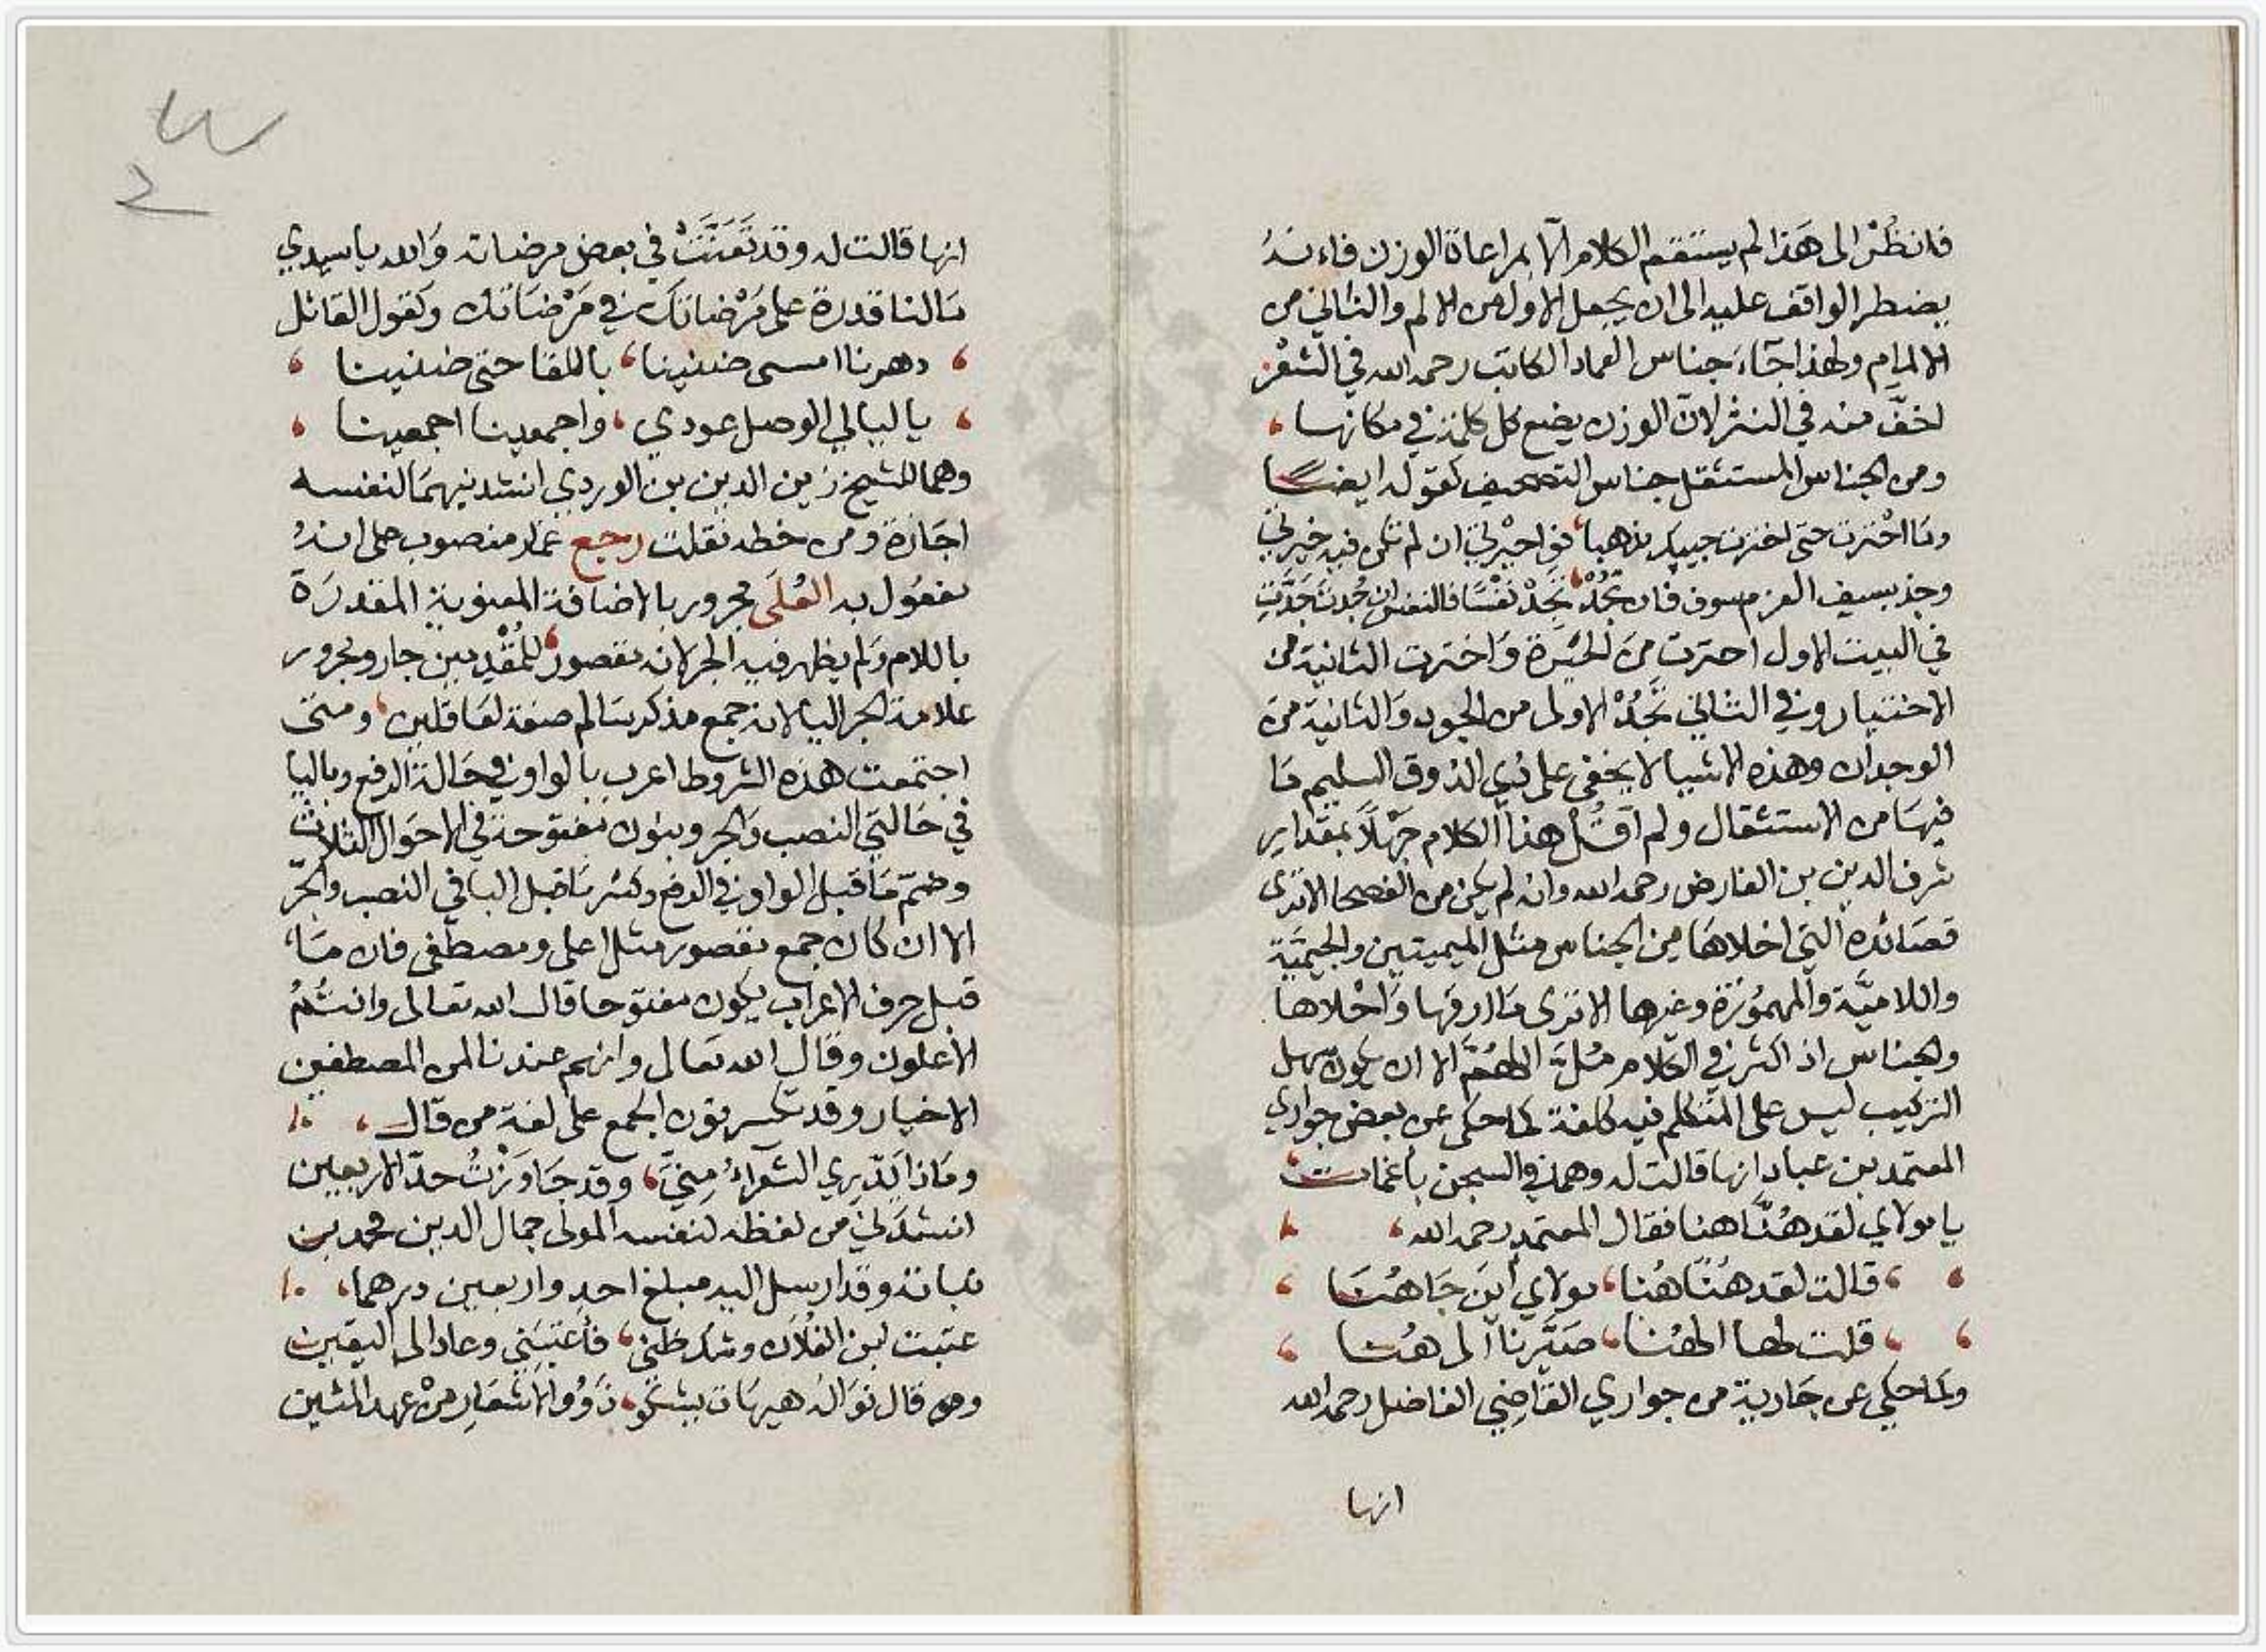 فانظر الى هَذا لم يستقم الكلام الا بمراعاة الوزن فانه
يضطر الواقف عليه الى ان يجعل الاول من الالم والثاني من
الالمام ولهذا جآء جناس العماد الكاتب رحمه الله في الشعر
اخفّ منه في النثر لانّ الوزن يضع كل كلمة في مكانها
ومن الجناس المستثقل جناس التصحيف كقوله ايضا
وما احْترت حتى اخترت حبيك مذهبا فواحيرتي ان لم تكن فيه خيرتي
وجذ بسيف العزم سوف فان تَجُدْ تَجِدْ نَفْسًا فالنفس ان جُدتَ جَدَّتِ
في البيت الاول احترت منَ الحَيْرة وَاخترت الثانية من
الاختيار وفي الثاني تَجُدْ الاولى من الجود وَالثانية من
الوجدان وهذه الاشيا لا يخفى على ذي الذوق السليم مَا
فيهَا من الاستثقال ولم اقُلْ هذا الكلام جَهْلاً بمقدار
شرف الدين بن الفارض رحمه الله وانه لم يكن من الفصحا الا ترى
قصَائده التي اخلاهَا من الجناس مثل الميميتين والجيميَّة
واللاميَّة والمهمُوزة وغيرها الا ترى مَا ارقها وَاحْلاها
والجناس اذا كثر في الكلام مُلَّ اللهُمَّ الا ان يكون سهل
التركيب ليس على المتكلم فيه كلفة كما حكى عن بعض جواري
المعتمد بن عباد انها قالت له وهما في السجن باغمات
يا مولاي لقد هُنَّا هنا فقال المعتمد رحمه الله
قالت لقد هُنَّا هُنا مولاي اينَ جَاهُنَا
قلت لها الهُنا صَيَّرنا الى هُنا
وكما حكي عن جَارية من جواري القَاضِي الفاضل رحمه الله
انها
انها قالت له وقد تَعَنَّتَتْ في بعض مرضاته وَالله يا سيدي
مَا لنا قدرة على مَرْضاتك في مَرْضَاتك وكقول القائل
دهرنا امسى ضنينا باللقا حتى ضنينا
يا ليالي الوصل عودي واجمعينا اجمعينا
وهما للشيخ زين الدين بن الوردي انشدنيهمَا لنفسه
اجَازة ومن خطه نقلت رجع عمّا منصوب على انه
مفعُول به العُلَى مجرور بالاضافة المعنوية المقدرَة
باللام وَلم يظهر فيه الجر لانه مقصور للمُقْدِمين جار ومجرور
علامة الجر اليا لانه جمع مذكر سَالم صفة لعَاقلين ومتى
اجتمعت هذه الشروط اعرب بالواو في حَالة الرفع وباليا
في حَالتي النصب وَالجر وبنون مفتوحة في الاحوَال الثلاث
وضمّ مَا قبل الواو في الرفع وكسْر مَا قبل اليا في النصب والجرّ
الا ان كان جمع مقصور مثل اعلى ومصطفى فان مَا
قبل حرف الاعراب يكون مفتوحا قال الله تعالى وانتُمُ
الأعلون وقال الله تعالى وانهم عندنا لمن المصطفين
الاخيار وقد تكسر نون الجمع على لغة من قال
ومَاذا يَدَّري الشعرآءُ مِنّي وقد جَاوَزْتُ حدّ الاربعين
انشدني من لفظه لنفسه المولى جمال الدين محمد بن
نباتة وقد ارسل اليه مبلغ احد واربعين درهما
عتبت لبن الفلان وشك ظني فأعتبَني وعاد الى اليقين
وهو قال نوَاله هيهَات يشكو ذَوُو الاشعَار مِنْ عهد المئين